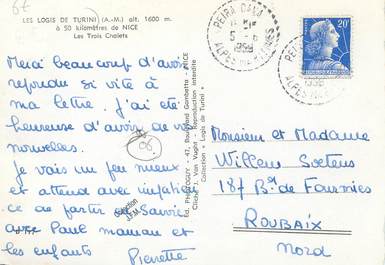 LES LOGIS DE TURINI (A.-M.) alt. 1600 m.
à 50 kilomètres de NICE
Les Trois Chalets
Merci beaucoup d'avoir
repondu si vite à
ma lettre. J'ai été
heureuse d'avoir de vos
nouvelles.
Je vais un peu mieux
et attend avec
ce de partir en Savoie
avec Paul maman et
les enfants
Pierrette
Sélection
J.F.M.
06
Ed. PHOTO-GUY - 47, Boulevard Gambetta - NICE
Cliché J. Van Vught - Reproduction interdite
Collection « Logis de Turini »
PEIRA CAVA
1959
ALPES MARITIMES
PEIRA
1959
ALPES
20F
Monsieur et Madame
Willems Soetens
187 Bd de Fourmies
ROUBAIX
Nord